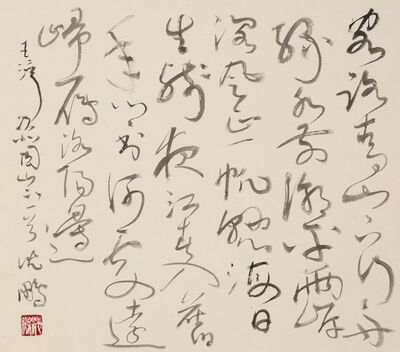 客路青山下行舟
綠水前潮平兩岸
闊風正一帆懸海日
生殘夜江春入舊
年鄉書何處達
歸雁洛陽邊
王灣次北固山下沈鵬